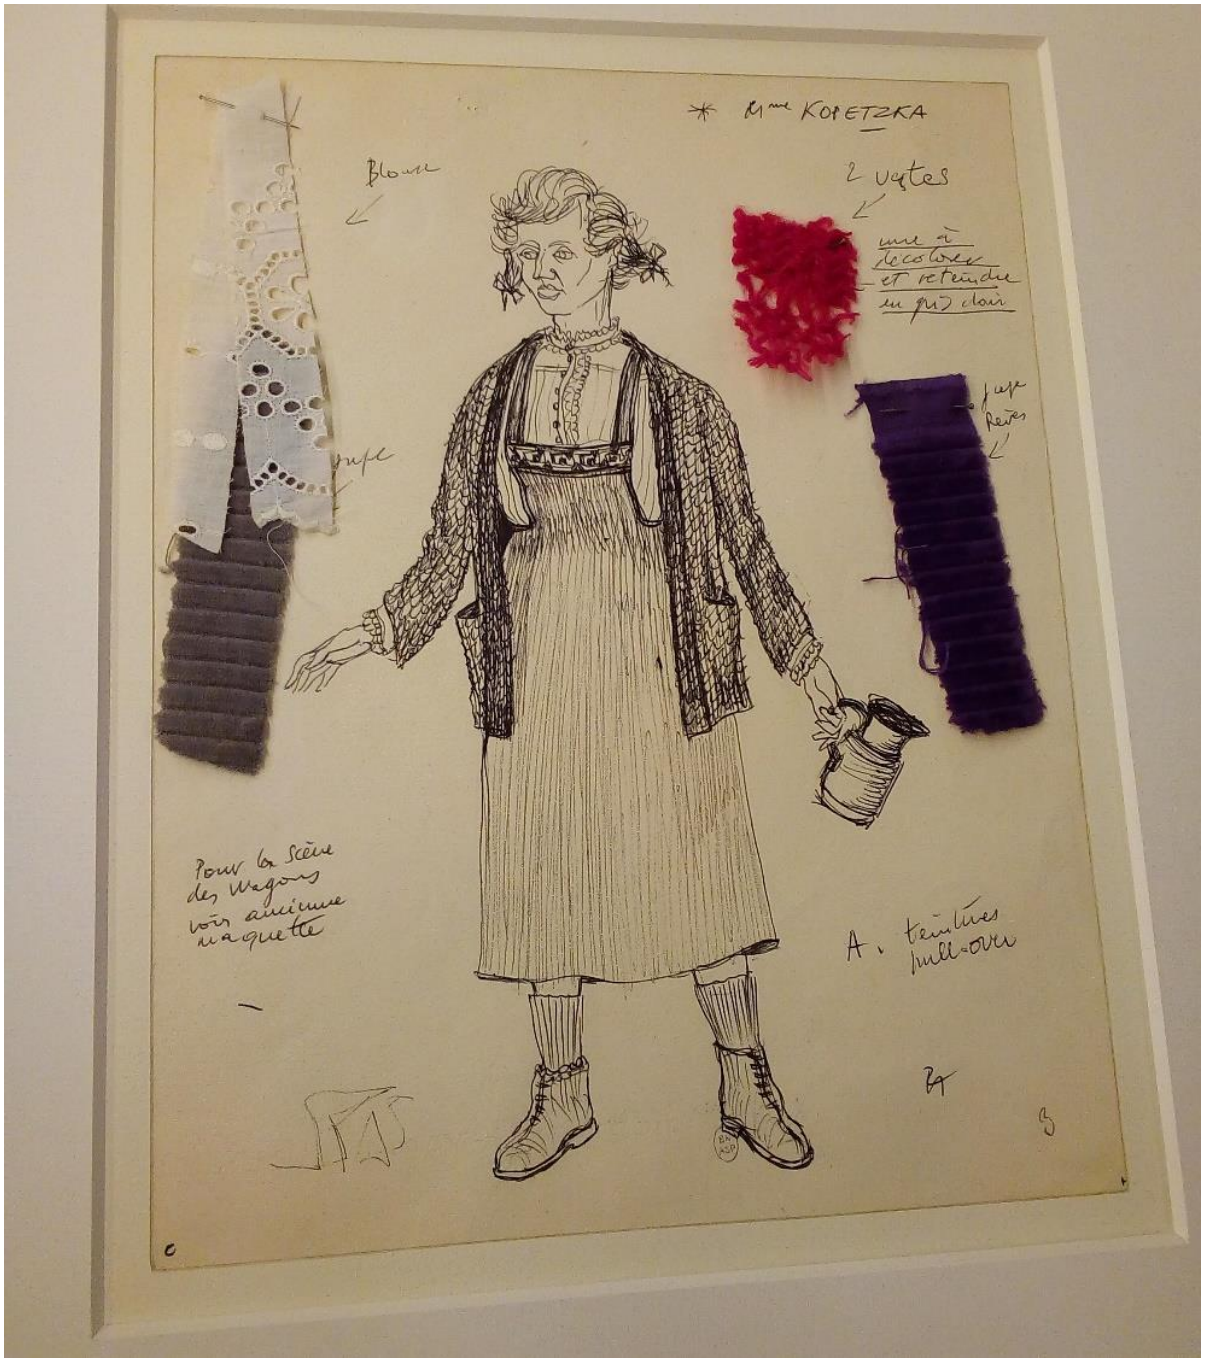 * Mme KOPETZKA
Blouse
2 vestes
une à
décolorer
et reteindre
en gris clair
jupe
Rêves
jupe
Pour la scène
des wagons
voir ancienne
maquette
A. teintures
pull-over
BA
3